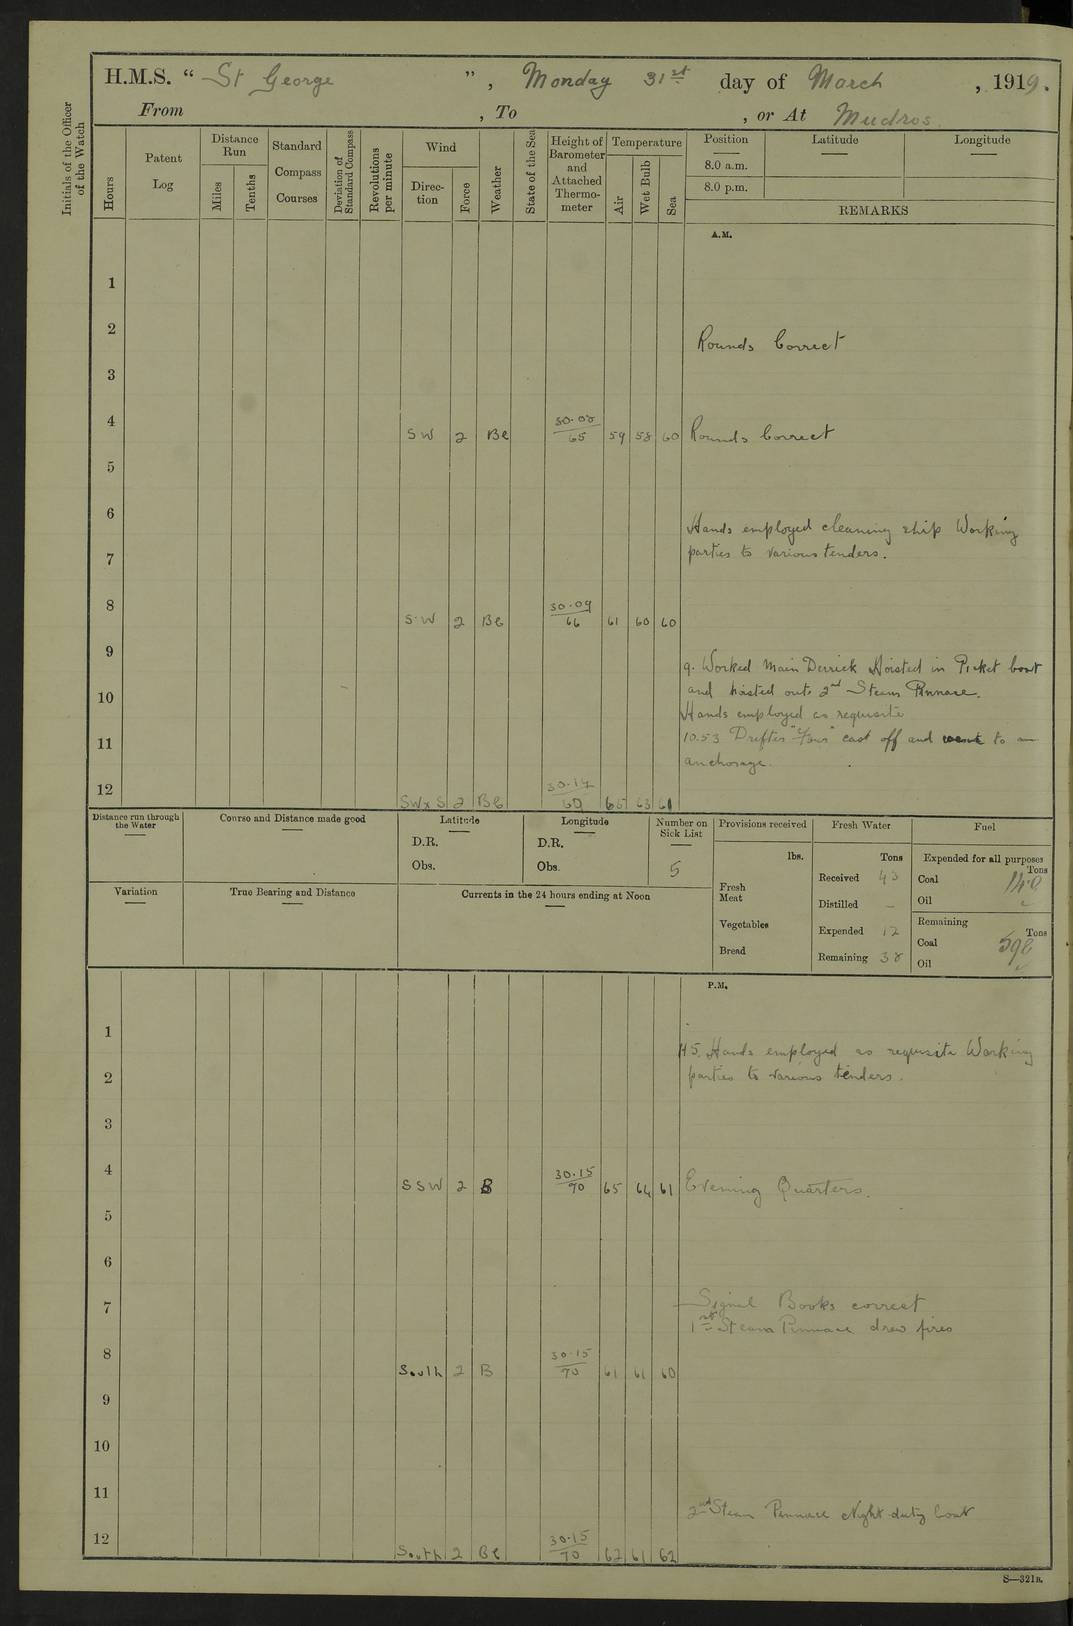 H.M.S. “ St George ” , Monday 31st day of March , 1919.
From , To , or At Mudros
Initials of the Officer of the Watch
Hours
Patent Log
Distance Run
Miles
Tenths
Standard Compass Courses
Deviation of Standard Compass
Revolutions per minute
Wind
Direction
Force
Weather
State of the Sea
Height of Barometer and Attached Thermometer
Temperature
Air
Wet Bulb
Sea
Position
8.0 a.m.
8.0 p.m.
Latitude
Longitude
REMARKS
A.M.
1
2
Rounds Correct
3
4 SW 2 Bc 30.08/65 59 58 60 Rounds Correct
5
6
Hands employed cleaning ship Working
parties to various tenders.
7
8 S.W 2 Bc 30.09/66 61 60 60
9
9. Worked Main Derrick Hoisted in Picket boat
and hoisted out 2nd Steam Pinnace.
10
Hands employed as requisite
11
10.53 Drifter cast off and went to an
anchorage.
12 SWxS 2 Bc 65 63 61
Distance run through the Water
Course and Distance made good
Latitude
D.R.
Obs.
Longitude
D.R.
Obs.
Number on Sick List
5
Provisions received
lbs.
Fresh Meat
Vegetables
Bread
Fresh Water
Tons
Received 43
Distilled –
Expended 12
Remaining 38
Fuel
Expended for all purposes
Tons
Coal
Oil
Remaining
Tons
Coal 598
Oil
Variation
True Bearing and Distance
Currents in the 24 hours ending at Noon
P.M.
1
Hands employed as requisite Working
parties to various tenders.
2
3
4 SSW 2 B 30.15/70 65 64 61 Evening Quarters.
5
6
7
Signal Books correct
1st Steam Pinnace drew fires
8 South 2 B 30.15/70 61 61 60
9
10
11
2nd Steam Pinnace Night duty boat
12 South 2 Bc 30.15/70 62 61 62
S—321B.